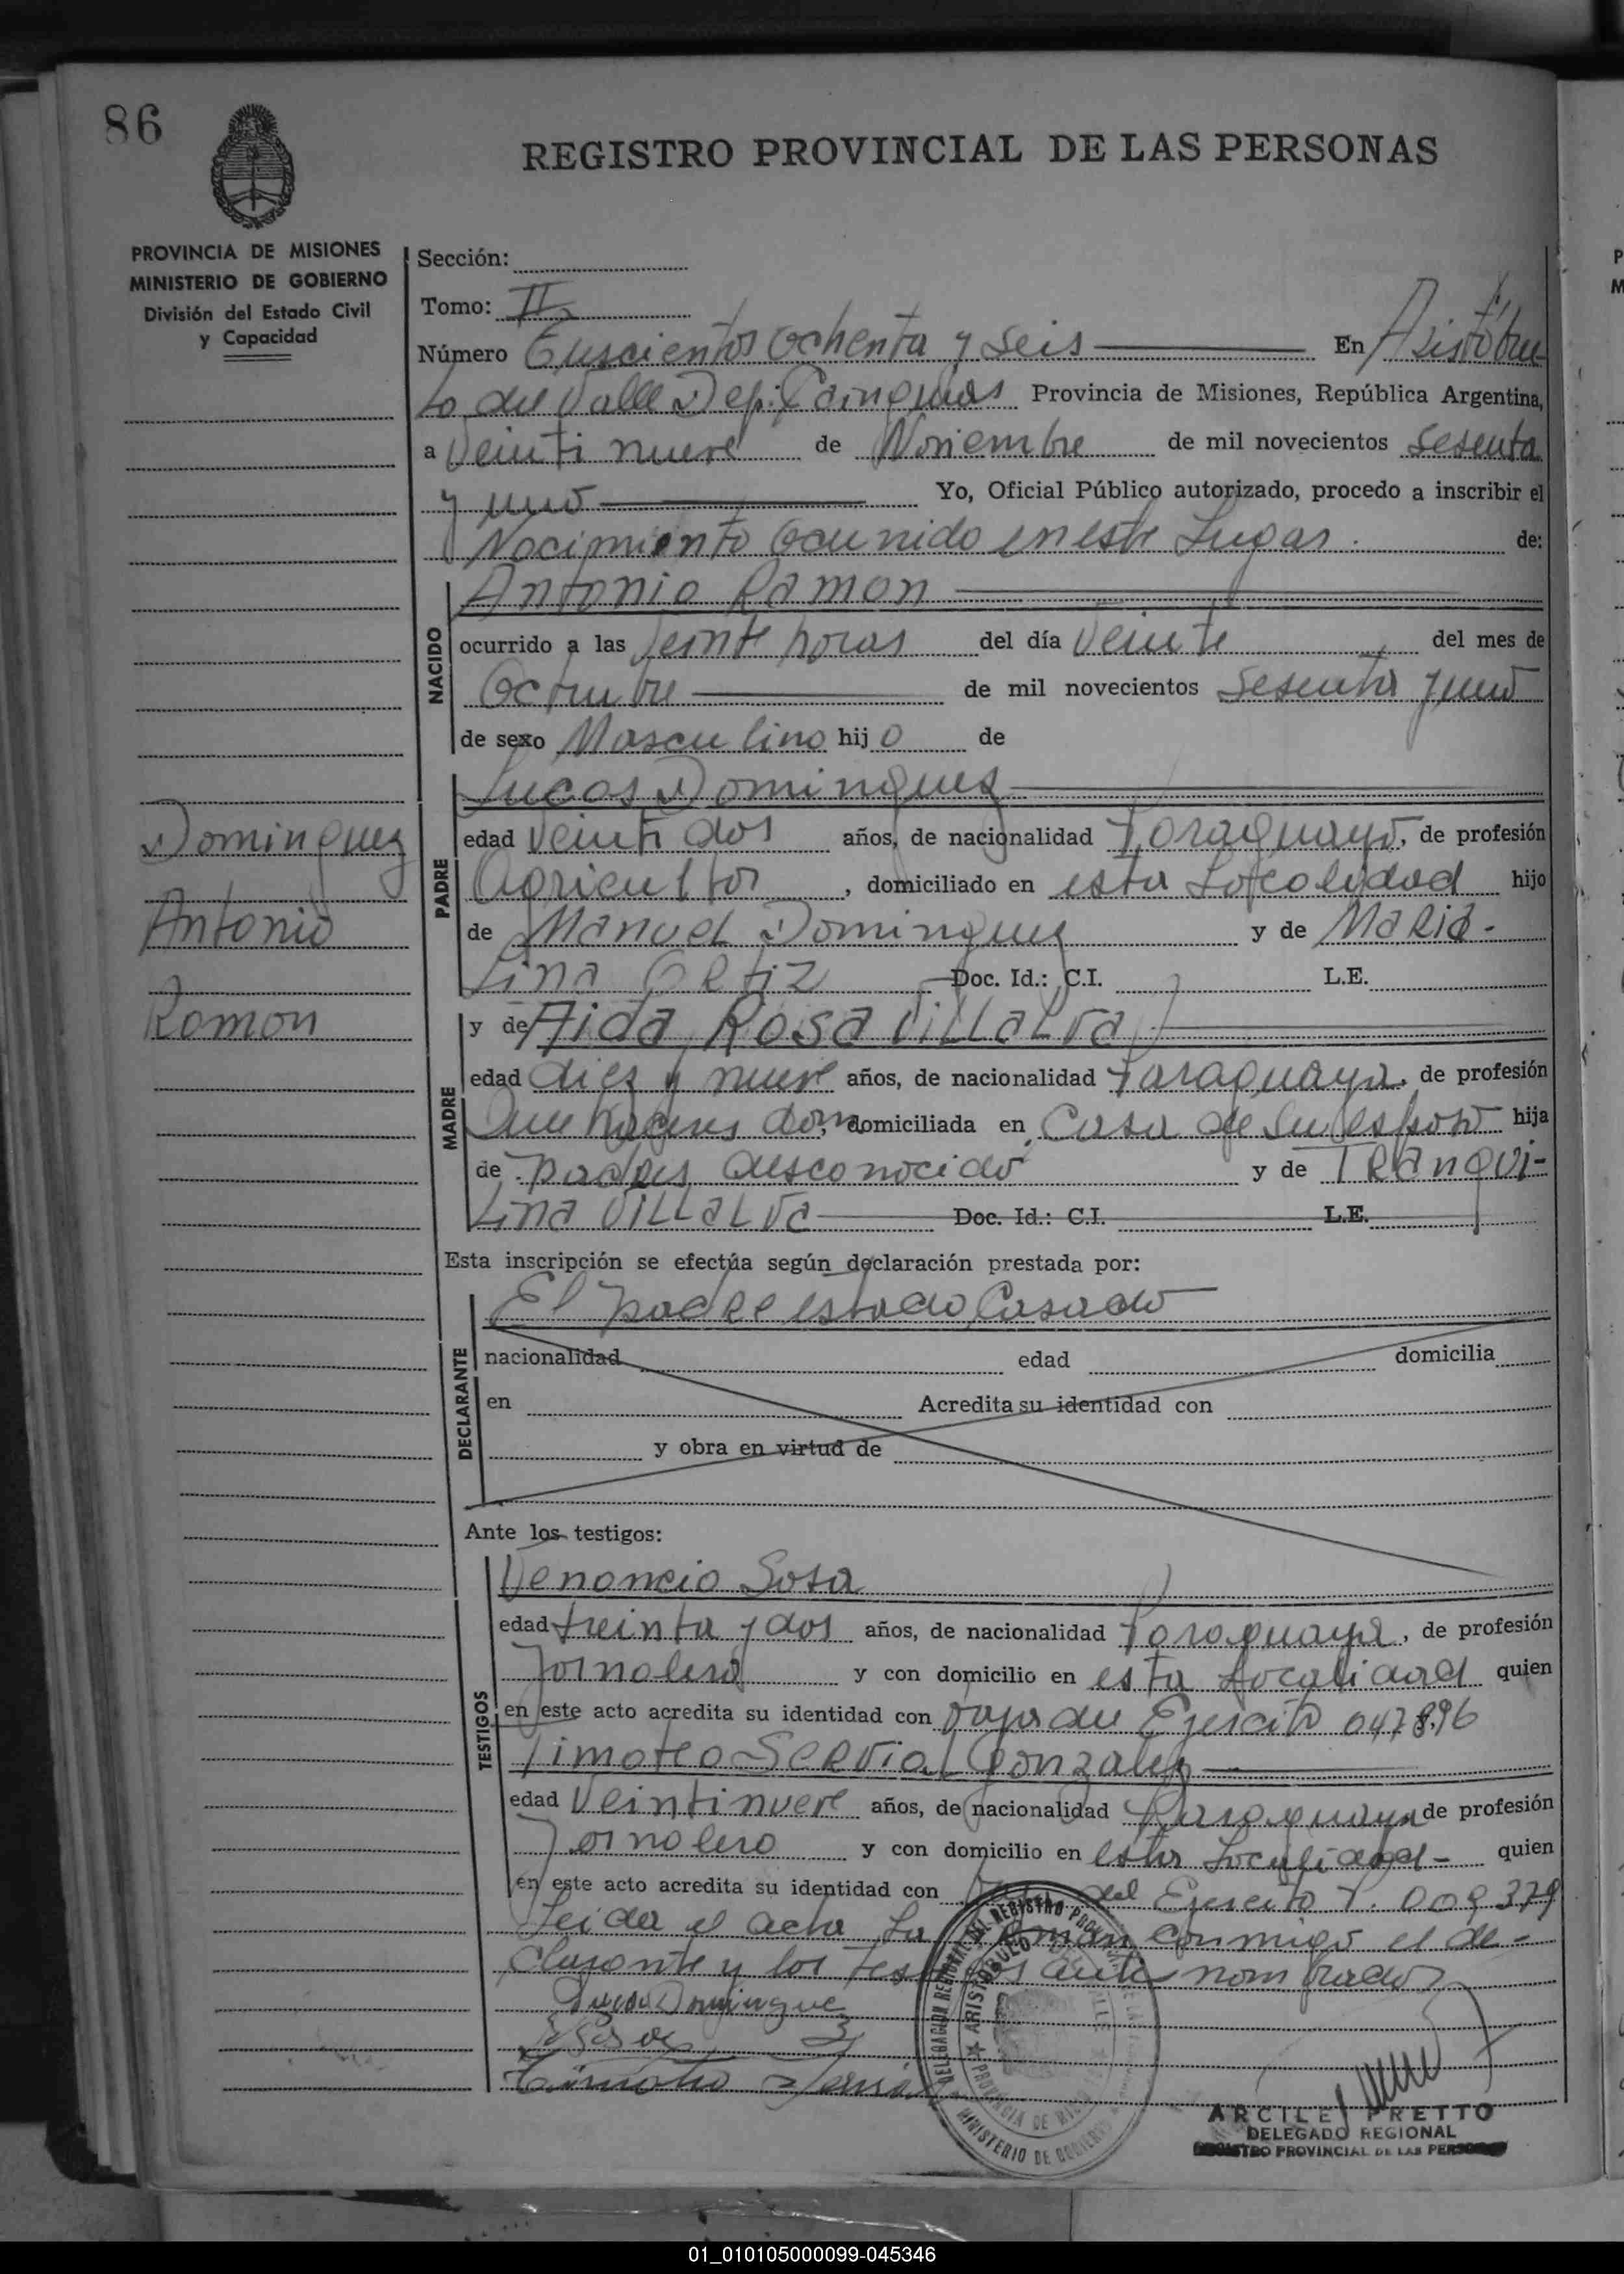 86
REGISTRO PROVINCIAL DE LAS PERSONAS
PROVINCIA DE MISIONES
MINISTERIO DE GOBIERNO
División del Estado Civil
y Capacidad
Sección:
Tomo: II
Número ochenta y seis En Aristóbu-
lo del Valle Dep. Cainguas Provincia de Misiones, República Argentina,
a Veinti nueve de Noviembre de mil novecientos sesenta
y uno Yo, Oficial Público autorizado, procedo a inscribir el
Nacimiento Ocurrido en este Lugar. de:
NACIDO
Antonio Ramon
ocurrido a las veinte horas del día Veinte del mes de
Octubre de mil novecientos sesenta y uno
de sexo Masculino hijo de
PADRE
Lucas Dominguez
Dominguez
Antonio
Ramon
edad Veinti dos años, de nacionalidad Paraguayo, de profesión
Agricultor, domiciliado en esta Localidad hijo
de Manuel Dominguez y de Maria-
Lina Ortiz Doc. Id.: C.I. L.E.
MADRE
y de Aida Rosa Villalva
edad dies y nueve años, de nacionalidad Paraguaya, de profesión
Que haceres dom, domiciliada en Casa de su esposo hija
de padres desconocido y de Tranqui-
Lina Villalva Doc. Id.: C.I. L.E.
Esta inscripción se efectúa según declaración prestada por:
DECLARANTE
El padre estado Casado
nacionalidad edad domicilia
en Acredita su identidad con
y obra en virtud de
Ante los testigos:
TESTIGOS
Venancio Sosa
edad treinta y dos años, de nacionalidad Paraguaya, de profesión
Jornalero y con domicilio en esta Localidad quien
en este acto acredita su identidad con baja del Ejercito 047896
Timoteo Servial Gonzalez
edad Veintinueve años, de nacionalidad Paraguaya de profesión
Jornalero y con domicilio en esta Localidad- quien
en este acto acredita su identidad con del Ejercito 009379
Leida el acta La firman conmigo el de-
clarante y los testigos ante nombrados
Lucas Domingue
Timoteo
DELEGACION REGIONAL DEL REGISTRO PROVINCIAL DE LAS
ARISTOBULO DEL VALLE
PROVINCIA DE MISIONES
MINISTERIO DE GOBIERNO
ARCILE PRETTO
DELEGADO REGIONAL
REGISTRO PROVINCIAL DE LAS PERSONAS
01_010105000099-045346